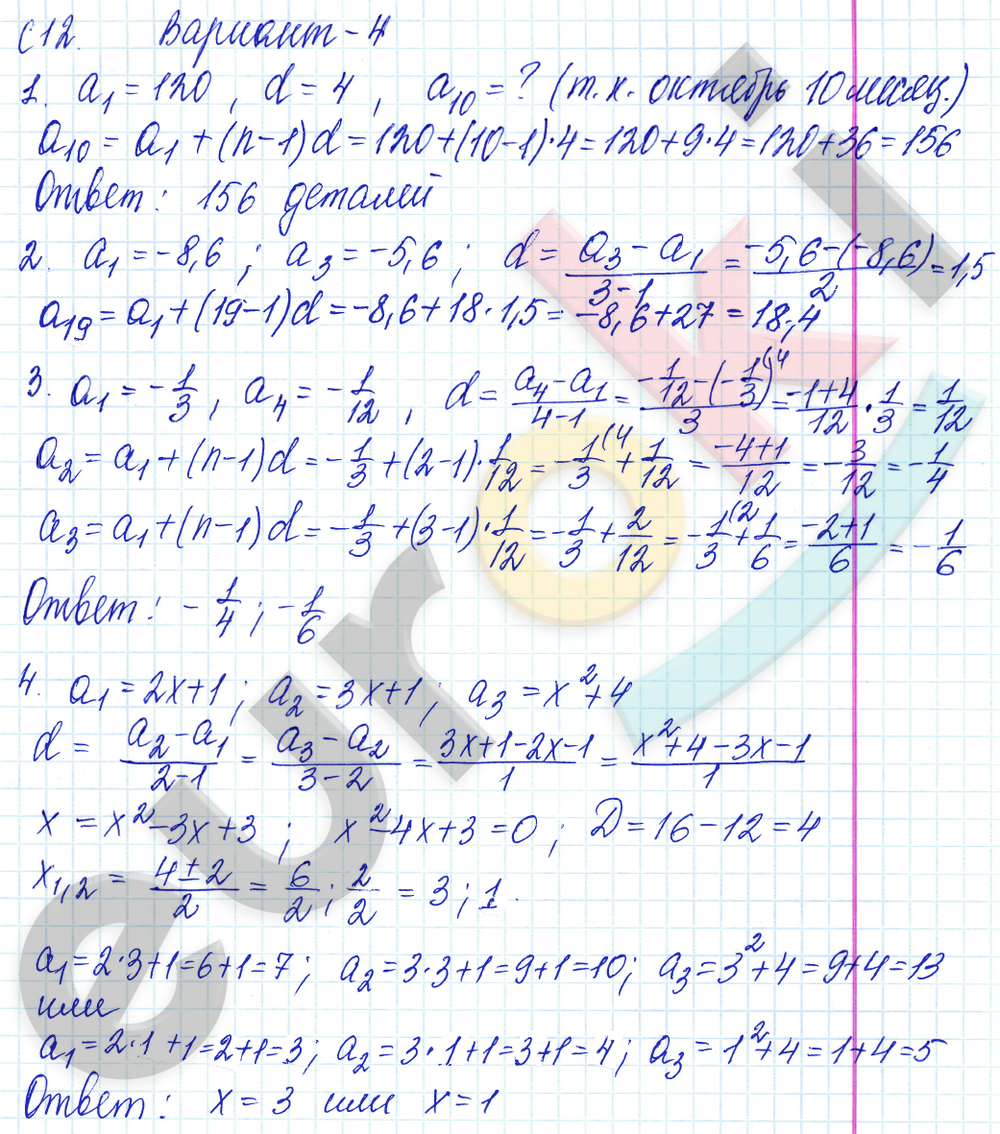 С12. Вариант-4
1. a₁ = 120, d = 4, a₁₀ = ? (т.к. октябрь 10 месяц.)
a₁₀ = a₁ + (n-1)d = 120+(10-1)·4 = 120+9·4 = 120+36 = 156
Ответ: 156 деталей
2. a₁ = -8,6; a₃ = -5,6; d = (a₃ - a₁)/(3-1) = (-5,6-(-8,6))/2 = 1,5
a₁₉ = a₁ + (19-1)d = -8,6+18·1,5 = -8,6+27 = 18,4
3. a₁ = -1/3, a₄ = -1/12, d = (a₄-a₁)/(4-1) = (-1/12-(-1/3)⁽⁴)/3 = (-1+4)/12 · 1/3 = 1/12
a₂ = a₁ + (n-1)d = -1/3 + (2-1)·1/12 = -1/3⁽⁴ + 1/12 = (-4+1)/12 = -3/12 = -1/4
a₃ = a₁ + (n-1)d = -1/3 + (3-1)·1/12 = -1/3 + 2/12 = -1/3⁽² + 1/6 = (-2+1)/6 = -1/6
Ответ: -1/4; -1/6
4. a₁ = 2x+1; a₂ = 3x+1; a₃ = x²+4
d = (a₂-a₁)/(2-1) = (a₃-a₂)/(3-2) = (3x+1-2x-1)/1 = (x²+4-3x-1)/1
x = x²-3x+3; x²-4x+3 = 0; D = 16-12 = 4
x₁,₂ = (4±2)/2 = 6/2; 2/2 = 3; 1.
a₁ = 2·3+1 = 6+1 = 7; a₂ = 3·3+1 = 9+1 = 10; a₃ = 3²+4 = 9+4 = 13
или
a₁ = 2·1+1 = 2+1 = 3; a₂ = 3·1+1 = 3+1 = 4; a₃ = 1²+4 = 1+4 = 5
Ответ: x = 3 или x = 1
euroki